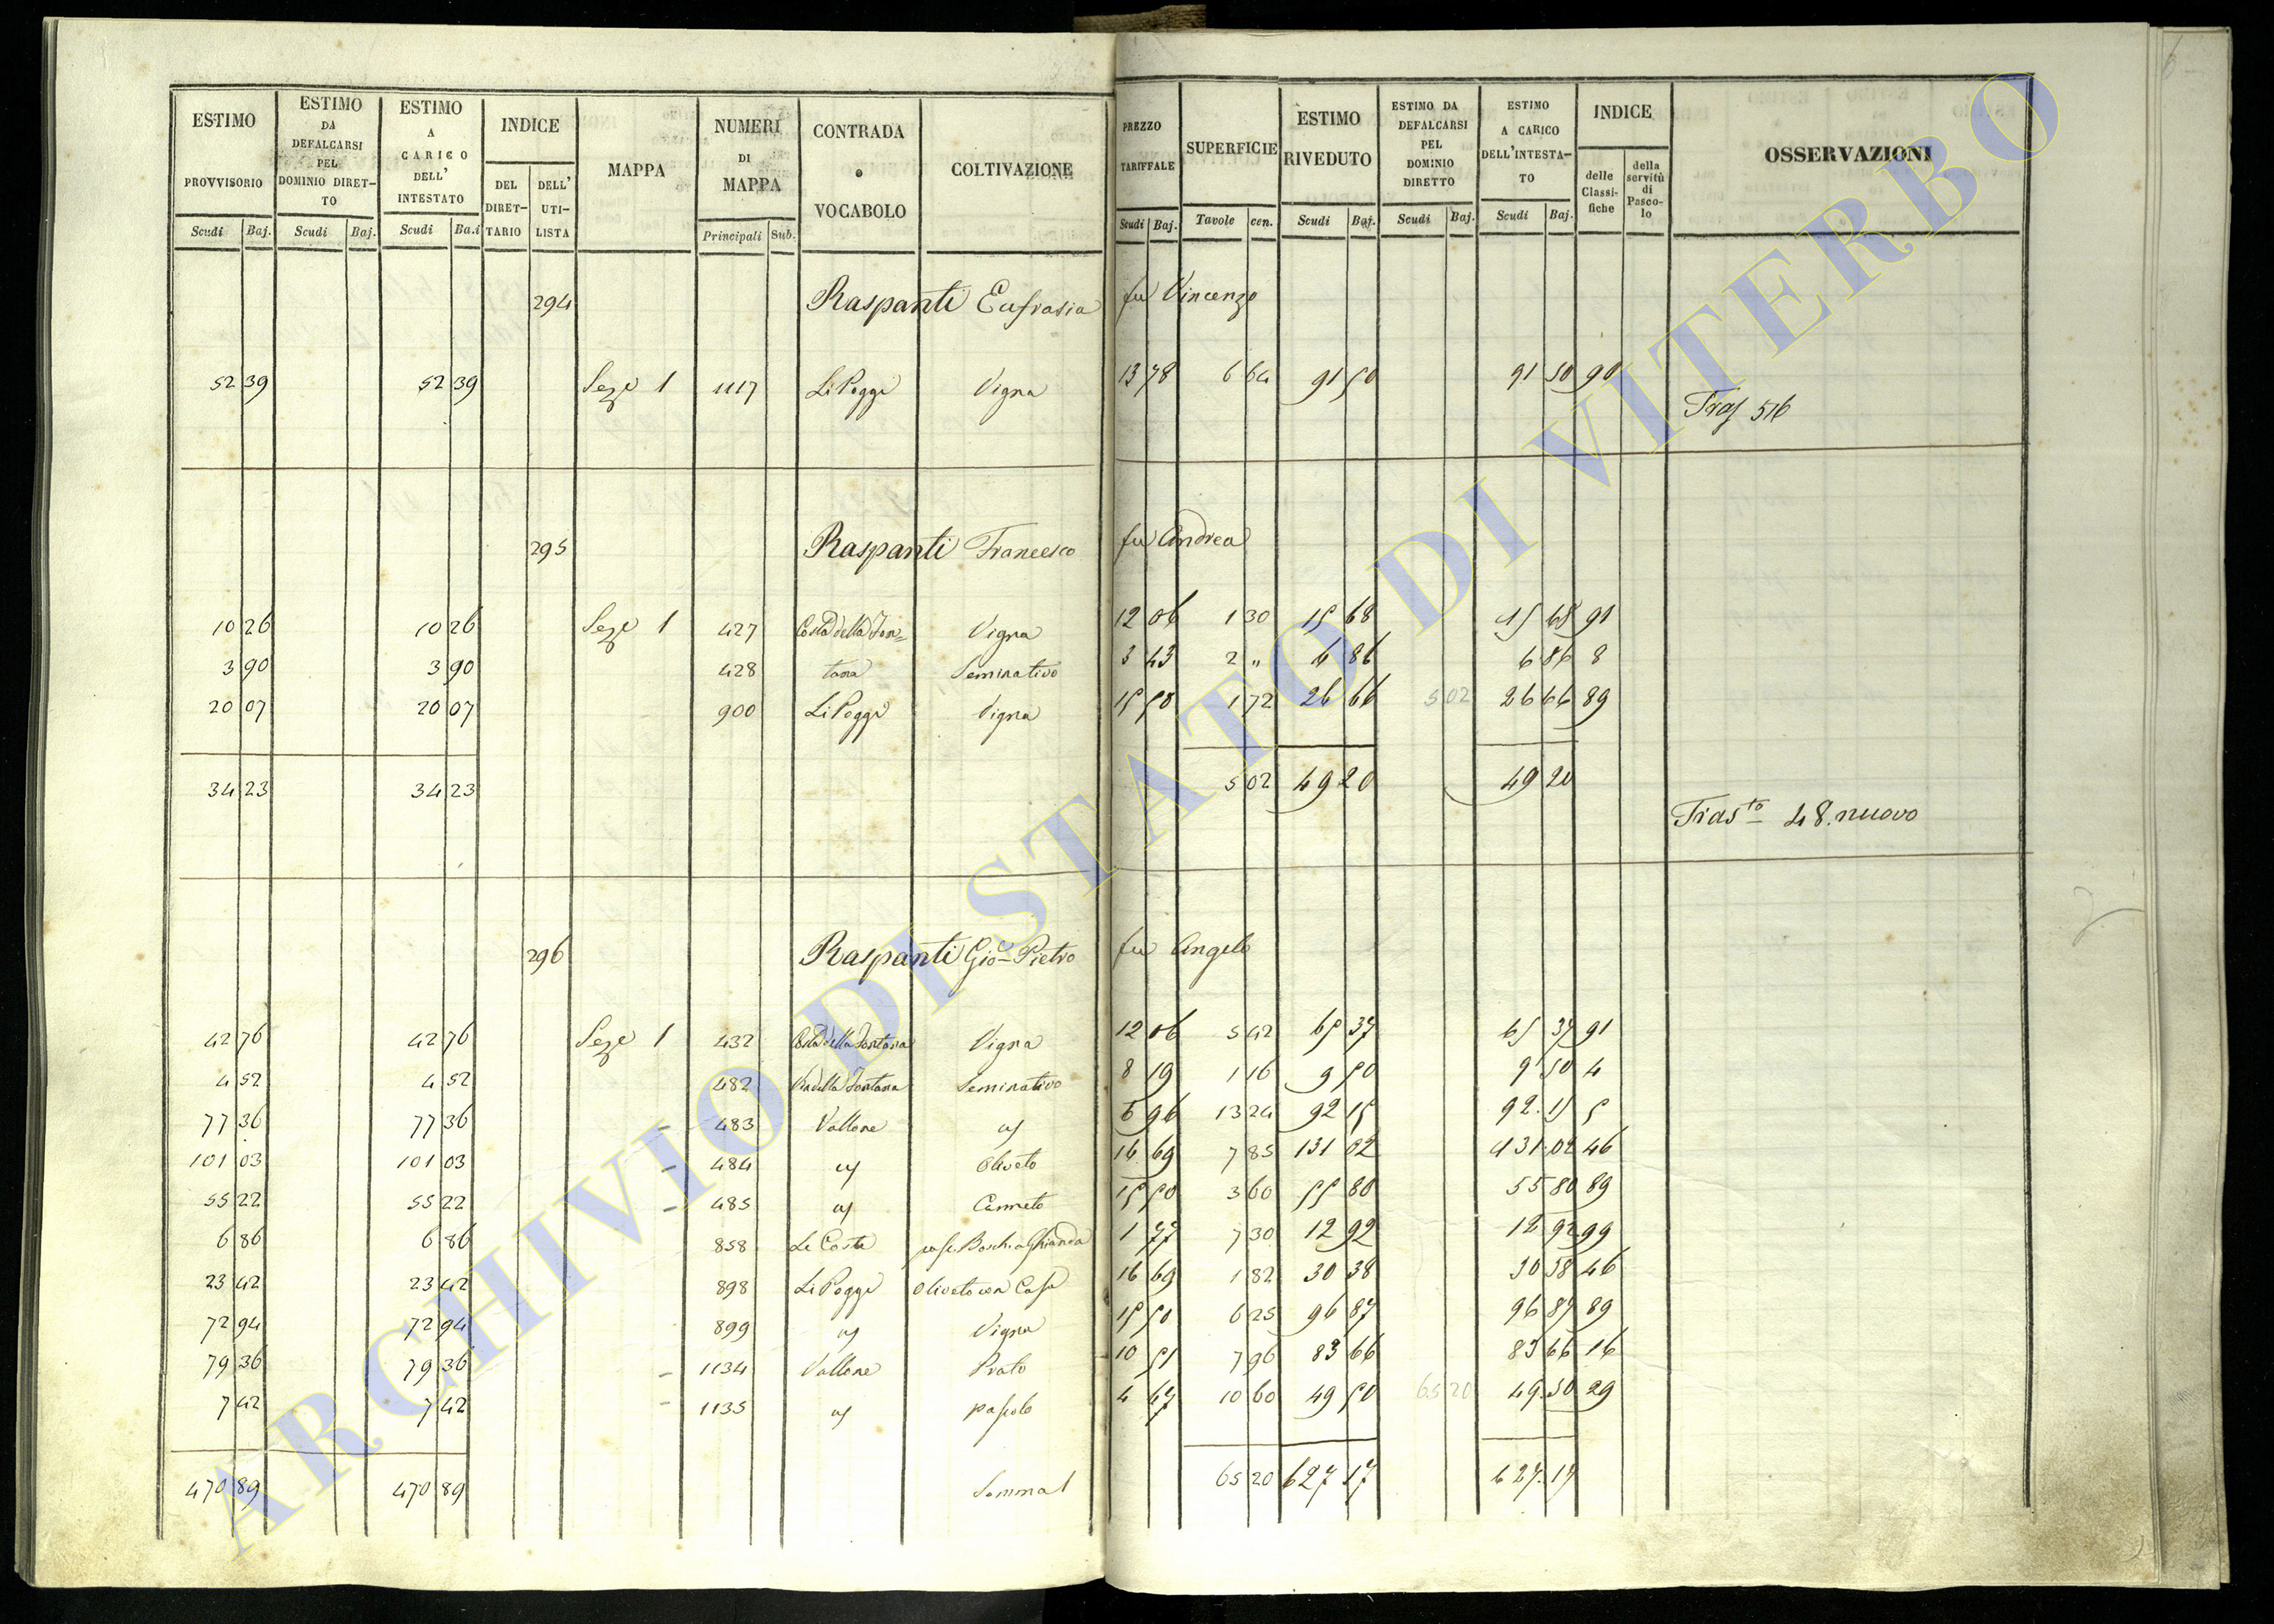 ESTIMO PROVVISORIO Scudi Baj.
ESTIMO DA DEFALCARSI PEL DOMINIO DIRET-TO Scudi Baj.
ESTIMO A CARICO DELL' INTESTATO Scudi Ba.i
INDICE DEL DIRET-TARIO DELL' UTI-LISTA
MAPPA
NUMERI DI MAPPA Principali Sub.
CONTRADA o VOCABOLO
COLTIVAZIONE
PREZZO TARIFFALE Scudi Baj.
SUPERFICIE Tavole cen.
ESTIMO RIVEDUTO Scudi Baj.
ESTIMO DA DEFALCARSI PEL DOMINIO DIRETTO Scudi Baj.
ESTIMO A CARICO DELL'INTESTA-TO Scudi Baj.
INDICE delle Classi-fiche della servitù di Pasco-lo
OSSERVAZIONI
294 Raspanti Eufrasia fu Vincenzo
52 39 52 39 Seze 1 1117 Li Poggi Vigna 13 78 6 64 91 50 91 50 90
Tras 516
295 Raspanti Francesco fu Andrea
10 26 10 26 Seze 1 427 Costa della Fon= Vigna 12 06 1 30 15 68 15 68 91
3 90 3 90 428 tana Seminativo 3 43 2 „ 6 86 6 86 8
20 07 20 07 900 Li Poggi Vigna 15 50 1 72 26 66 5 02 26 66 89
34 23 34 23 5 02 49 20 49 20
Tras.to 48. nuovo
296 Raspanti Gio Pietro fu Angelo
42 76 42 76 Seze 1 432 Costa della Fontana Vigna 12 06 5 42 65 37 65 37 91
4 52 4 52 482 della Fontana Seminativo 8 19 1 16 9 50 9 50 4
77 36 77 36 - 483 Vallone 6 96 13 24 92 15 92. 15 5
101 03 101 03 - 484 Oliveto 16 69 7 85 131 02 131. 02 46
55 22 55 22 - 485 Canneto 15 50 3 60 55 80 55 80 89
6 86 6 86 858 Le Coste Ghianda 1 77 7 30 12 92 12 92 99
23 42 23 42 898 Li Poggi Oliveto con Casa 16 69 1 82 30 38 30 38 46
72 94 72 94 899 Vigna 15 50 6 25 96 87 96 87 89
79 36 79 36 - 1134 Vallone Prato 10 51 7 96 83 66 83 66 16
7 42 7 42 - 1135 pascolo 4 67 10 60 49 50 65 20 49. 50 29
470 89 470 89 Somma 65 20 627 17 627. 17
ARCHIVIO DI STATO DI VITERBO